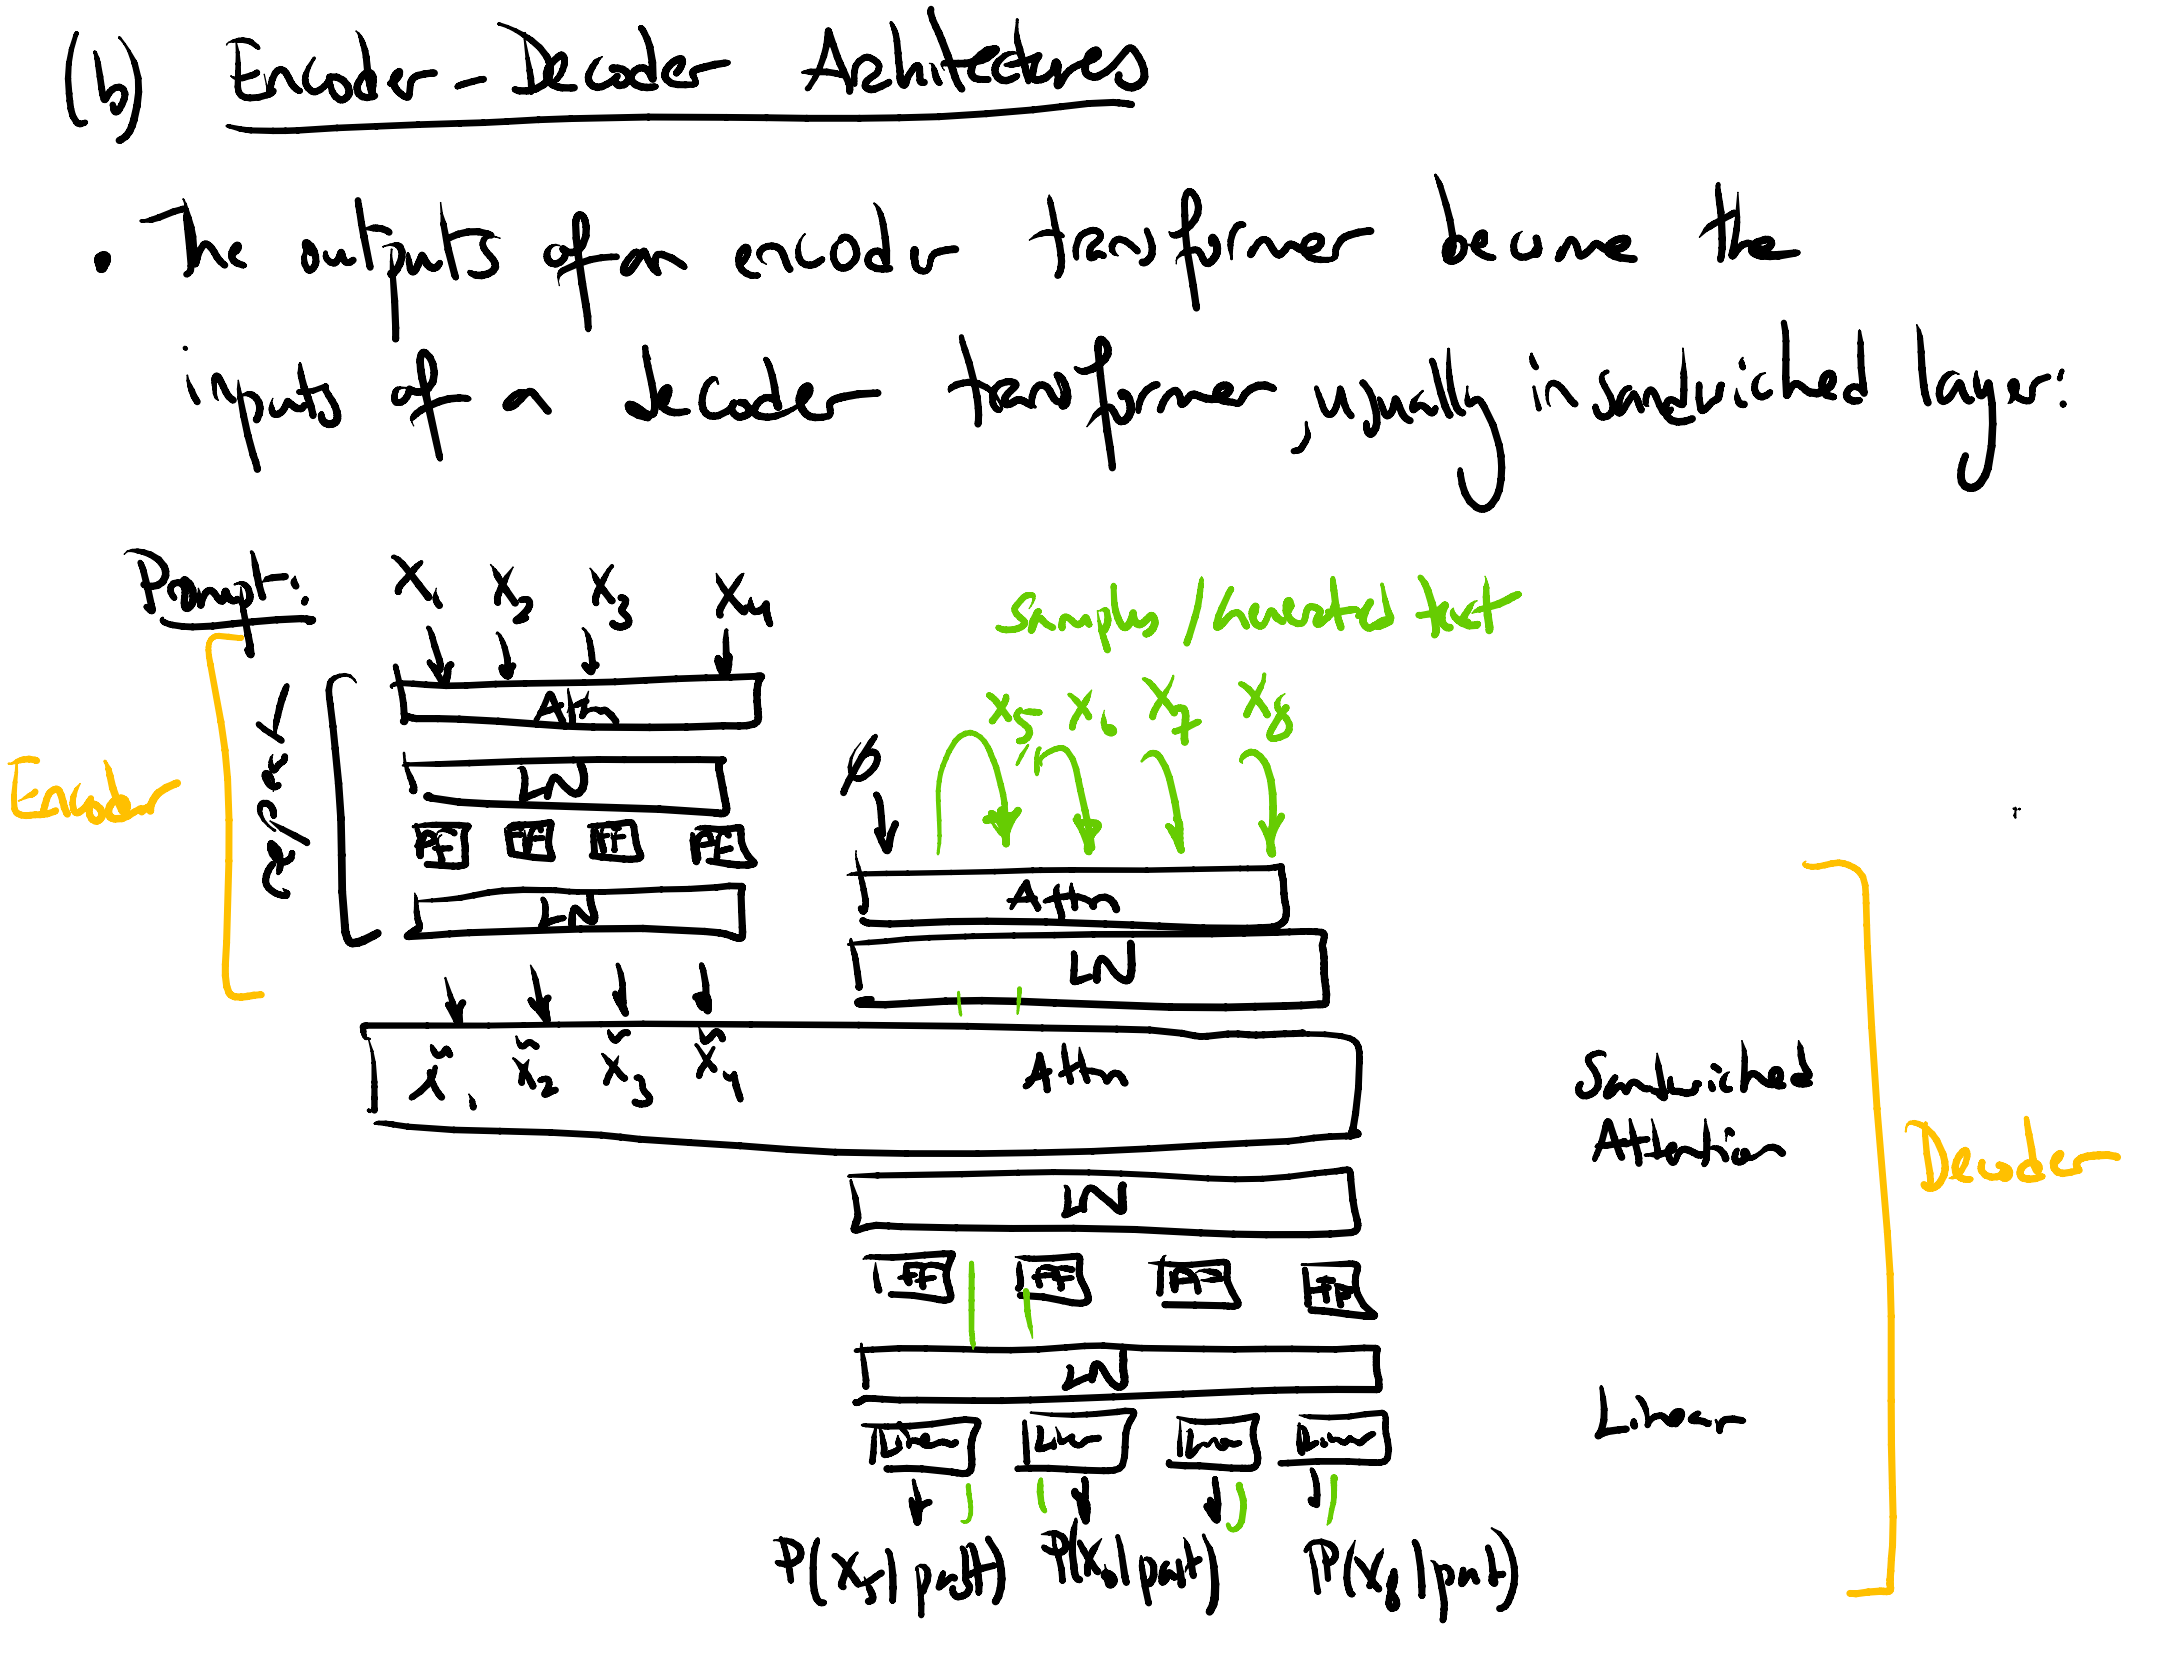 (b) Encoder-Decoder Architectures
• The outputs of an encoder transformer become the
inputs of a decoder transformer, usually in sandwiched layer:
Prompt: X₁ X₂ X₃ X₄
Samples / generated text
Encoder
repeat
Attn
LN
FF FF FF FF
LN
X₅ X₆ X₇ X₈
ø
Attn
LN
x̃₁ x̃₂ x̃₃ x̃₄ Attn
Sandwiched
Attention
Decoder
LN
FF FF FF FF
LN
Linear Linear Linear Linear
Linear
P(X₅|past) P(X₆|past) P(X₈|past)